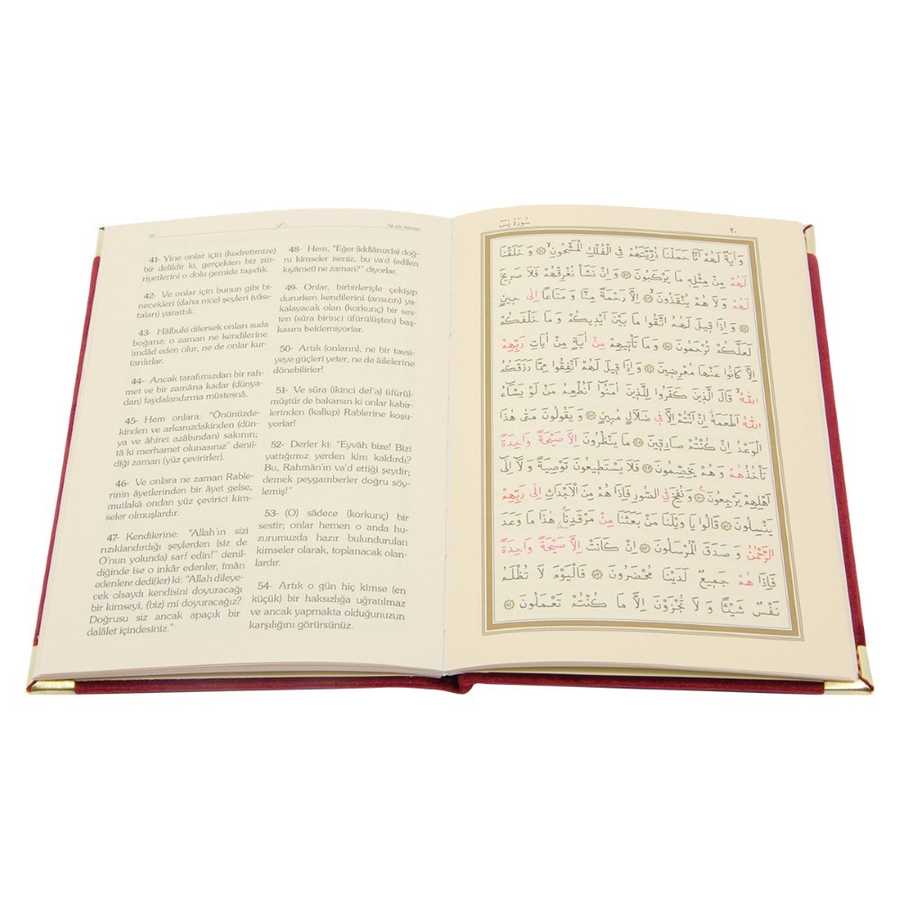 41- Yine onlar için (kudretimize)
bir delildir ki, gerçekten biz zür-
riyetlerini o dolu gemide taşıdık.
42- Ve onlar için bunun gibi bi-
necekleri (daha nice) şeyleri (vâsı-
taları) yarattık.
43- Hâlbuki dilersek onları suda
boğarız; o zaman ne kendilerine
imdâd eden olur, ne de onlar kur-
tarılırlar.
44- Ancak tarafımızdan bir rah-
met ve bir zamâna kadar (dünya-
dan) faydalandırma müstesnâ.
45- Hem onlara: "Önünüzde-
kinden ve arkanızdakinden (dün-
ya ve âhiret azâbından) sakının;
tâ ki merhamet olunasınız" denil-
diği zaman (yüz çevirirler).
46- Ve onlara ne zaman Rable-
rinin âyetlerinden bir âyet gelse,
mutlakâ ondan yüz çevirici kim-
seler olmuşlardır.
47- Kendilerine: "Allah'ın sizi
rızıklandırdığı şeylerden (siz de
O'nun yolunda) sarf edin!" denil-
diğinde ise o inkâr edenler, îmân
edenlere dedi(ler) ki: "Allah dileye-
cek olsaydı kendisini doyuracağı
bir kimseyi, (biz) mi doyuracağız?
Doğrusu siz ancak apaçık bir
dalâlet içindesiniz."
48- Hem, "Eğer (iddiânızda) doğ-
ru kimseler iseniz, bu va'd (edilen
kıyâmet) ne zaman?" diyorlar.
49- Onlar, birbirleriyle çekişip
dururken kendilerini (ansızın) ya-
kalayacak olan (korkunç) bir ses-
ten (sûra birinci üfürülüşten) baş-
kasını beklemiyorlar.
50- Artık (onların), ne bir tavsi-
yeye güçleri yeter, ne de âilelerine
dönebilirler!
51- Ve sûra (ikinci def'a) üfürül-
müştür de bakarsın ki onlar kabir-
lerinden (kalkıp) Rablerine koşu-
yorlar!
52- Derler ki: "Eyvâh bize! Bizi
yattığımız yerden kim kaldırdı?
Bu, Rahmân'ın va'd ettiği şeydir;
demek peygamberler doğru söy-
lemiş!"
53- (O) sâdece (korkunç) bir
sestir; onlar hemen o anda hu-
zurumuzda hazır bulundurulan
kimseler olarak, toplanacak olan-
lardır.
54- Artık o gün hiç kimse (en
küçük) bir haksızlığa uğratılmaz
ve ancak yapmakta olduğunuzun
karşılığını görürsünüz.
سُورَةُ يٰسٓ ٢٠
وَاٰيَةٌ لَهُمْ اَنَّا حَمَلْنَا ذُرِّيَّتَهُمْ فِي الْفُلْكِ الْمَشْحُونِ ۞ وَخَلَقْنَا
لَهُمْ مِنْ مِثْلِهِ مَا يَرْكَبُونَ ۞ وَاِنْ نَشَأْ نُغْرِقْهُمْ فَلَا صَرِيخَ
لَهُمْ وَلَا هُمْ يُنْقَذُونَ ۞ اِلَّا رَحْمَةً مِنَّا وَمَتَاعًا اِلٰى حِينٍ
۞ وَاِذَا قِيلَ لَهُمُ اتَّقُوا مَا بَيْنَ اَيْدِيكُمْ وَمَا خَلْفَكُمْ
لَعَلَّكُمْ تُرْحَمُونَ ۞ وَمَا تَأْتِيهِمْ مِنْ اٰيَةٍ مِنْ اٰيَاتِ رَبِّهِمْ
اِلَّا كَانُوا عَنْهَا مُعْرِضِينَ ۞ وَاِذَا قِيلَ لَهُمْ اَنْفِقُوا مِمَّا رَزَقَكُمُ
اللّٰهُ قَالَ الَّذِينَ كَفَرُوا لِلَّذِينَ اٰمَنُوا اَنُطْعِمُ مَنْ لَوْ يَشَاءُ
اللّٰهُ اَطْعَمَهُ اِنْ اَنْتُمْ اِلَّا فِي ضَلَالٍ مُبِينٍ ۞ وَيَقُولُونَ مَتٰى هٰذَا
الْوَعْدُ اِنْ كُنْتُمْ صَادِقِينَ ۞ مَا يَنْظُرُونَ اِلَّا صَيْحَةً وَاحِدَةً
تَأْخُذُهُمْ وَهُمْ يَخِصِّمُونَ ۞ فَلَا يَسْتَطِيعُونَ تَوْصِيَةً وَلَا اِلٰى
اَهْلِهِمْ يَرْجِعُونَ ۞ وَنُفِخَ فِي الصُّورِ فَاِذَا هُمْ مِنَ الْاَجْدَاثِ اِلٰى رَبِّهِمْ
يَنْسِلُونَ ۞ قَالُوا يَا وَيْلَنَا مَنْ بَعَثَنَا مِنْ مَرْقَدِنَا هٰذَا مَا وَعَدَ
الرَّحْمٰنُ وَصَدَقَ الْمُرْسَلُونَ ۞ اِنْ كَانَتْ اِلَّا صَيْحَةً وَاحِدَةً
فَاِذَا هُمْ جَمِيعٌ لَدَيْنَا مُحْضَرُونَ ۞ فَالْيَوْمَ لَا تُظْلَمُ
نَفْسٌ شَيْئًا وَلَا تُجْزَوْنَ اِلَّا مَا كُنْتُمْ تَعْمَلُونَ ۞